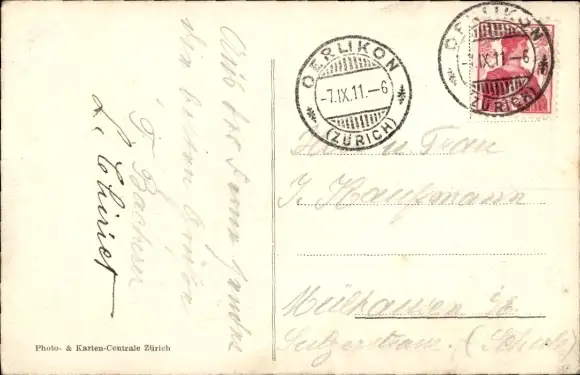 Aus der Ferne sendet
die besten Grüße
F. Bachner
OERLIKON
-7.IX.11.-6
(ZÜRICH)
OERLIKON
-7.IX.11.-6
(ZÜRICH)
Herr u Frau
Kaufmann
Mülhausen i/E
Sulzerstrasse. (Schulz)
Photo- & Karten-Centrale Zürich